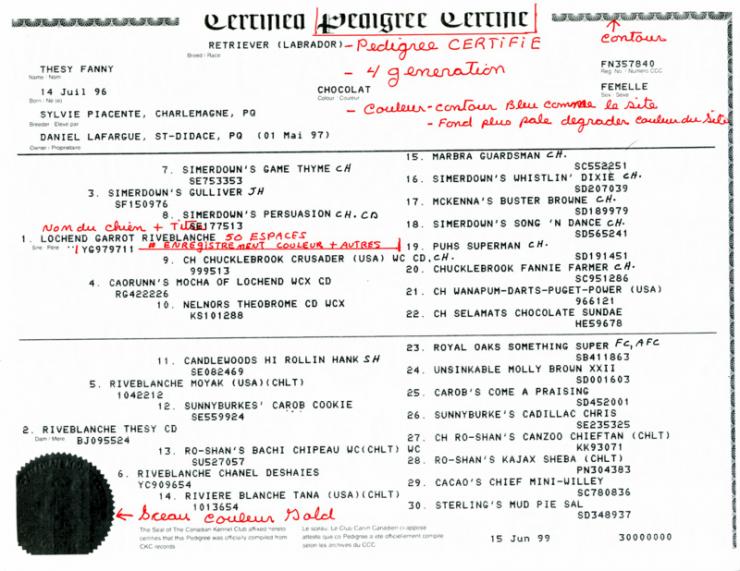 Certified Pedigree Certifié
contour
RETRIEVER (LABRADOR) - Pedigree CERTiFiE
Breed / Race
THESY FANNY
Name / Nom
- 4 generation
FN357840
Reg. No. / Numéro CCC
14 Juil 96
Born / Né (e)
CHOCOLAT
Colour / Couleur
FEMELLE
Sex / Sexe
- Couleur - contour Bleu comme le site
- Fond plus pale dégrader couleur du site
SYLVIE PIACENTE, CHARLEMAGNE, PQ
Breeder / Élevé par
DANIEL LAFARGUE, ST-DIDACE, PQ (01 Mai 97)
Owner / Propriétaire
15. MARBRA GUARDSMAN CH.
SC552251
7. SIMERDOWN'S GAME THYME CH
SE753353
16. SIMERDOWN'S WHISTLIN' DIXIE CH.
SD207039
3. SIMERDOWN'S GULLIVER JH
SF150976
17. MCKENNA'S BUSTER BROWNE CH.
SD189979
8. SIMERDOWN'S PERSUASION CH. CD
SE177513
18. SIMERDOWN'S SONG 'N DANCE CH.
SD565241
Nom du chien + Titre
1. LOCHEND GARROT RIVEBLANCHE 50 ESPACES
Sire / Père
YG979711 # ENREGISTREMENT COULEUR + AUTRES
19. PUHS SUPERMAN CH.
SD191451
9. CH CHUCKLEBROOK CRUSADER (USA) WC CD, CH.
999513
20. CHUCKLEBROOK FANNIE FARMER CH.
SC951286
4. CAORUNN'S MOCHA OF LOCHEND WCX CD
RG422226
21. CH WANAPUM-DARTS-PUGET-POWER (USA)
966121
10. NELNORS THEOBROME CD WCX
KS101288
22. CH SELAMATS CHOCOLATE SUNDAE
HE59678
23. ROYAL OAKS SOMETHING SUPER FC, AFC
SB411863
11. CANDLEWOODS HI ROLLIN HANK SH
SE082469
24. UNSINKABLE MOLLY BROWN XXII
SD001603
5. RIVEBLANCHE MOYAK (USA)(CHLT)
1042212
25. CAROB'S COME A PRAISING
SD452001
12. SUNNYBURKES' CAROB COOKIE
SE559924
26. SUNNYBURKE'S CADILLAC CHRIS
SE235325
2. RIVEBLANCHE THESY CD
Dam / Mère
BJ095524
27. CH RO-SHAN'S CANZOO CHIEFTAN (CHLT)
KK93071
13. RO-SHAN'S BACHI CHIPEAU WC(CHLT) WC
SU527057
28. RO-SHAN'S KAJAX SHEBA (CHLT)
PN304383
6. RIVEBLANCHE CHANEL DESHAIES
YC909654
29. CACAO'S CHIEF MINI-WILLEY
SC780836
14. RIVIERE BLANCHE TANA (USA)(CHLT)
1013654
30. STERLING'S MUD PIE SAL
SD348937
Sceau couleur Gold
The Seal of The Canadian Kennel Club affixed hereto
certifies that this Pedigree was officially compiled from
CKC records
Le sceau Le Club Canin Canadien ci-apposé
atteste que ce Pedigree a été officiellement compilé
selon les archives du CCC
15 Jun 99
30000000